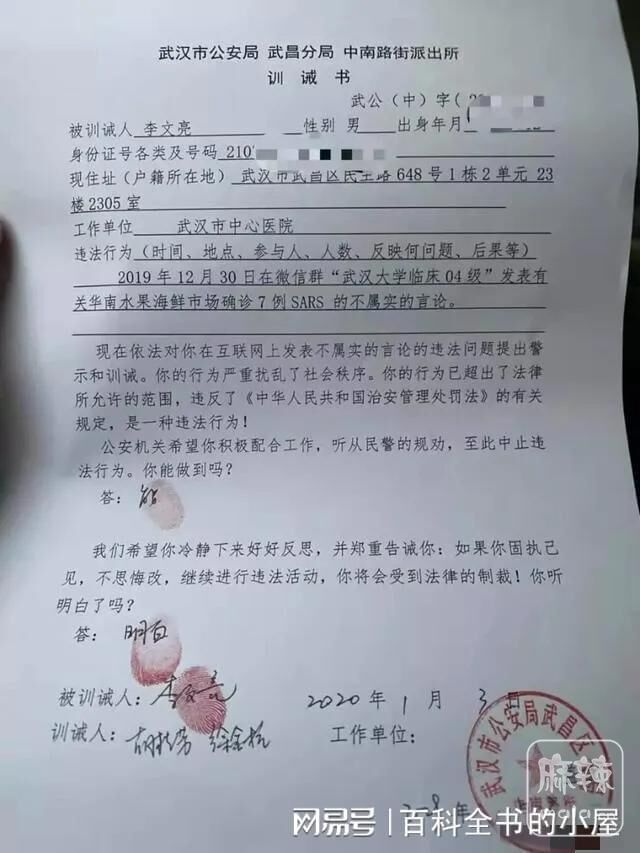 武汉市公安局 武昌分局 中南路街派出所
训 诫 书
武公（中）字（
被训诫人 李文亮 性别 男 出身年月
身份证号各类及号码 210
现住址（户籍所在地） 武汉市武昌区民主路 648 号 1 栋 2 单元 23
楼 2305 室
工作单位 武汉市中心医院
违法行为（时间、地点、参与人、人数、反映何问题、后果等）
2019 年 12 月 30 日在微信群“武汉大学临床 04 级”发表有
关华南水果海鲜市场确诊 7 例 SARS 的不属实的言论。
现在依法对你在互联网上发表不属实的言论的违法问题提出警
示和训诫。你的行为严重扰乱了社会秩序。你的行为已超出了法律
所允许的范围，违反了《中华人民共和国治安管理处罚法》的有关
规定，是一种违法行为！
公安机关希望你积极配合工作，听从民警的规劝，至此中止违
法行为。你能做到吗？
答： 能
我们希望你冷静下来好好反思，并郑重告诫你：如果你固执己
见，不思悔改，继续进行违法活动，你将会受到法律的制裁！你听
明白了吗？
答： 明白
被训诫人： 李文亮 2020 年 1 月 3 日
训诫人： 工作单位：
武汉市公安局武昌区
年
麻辣
网易号 | 百科全书的小屋